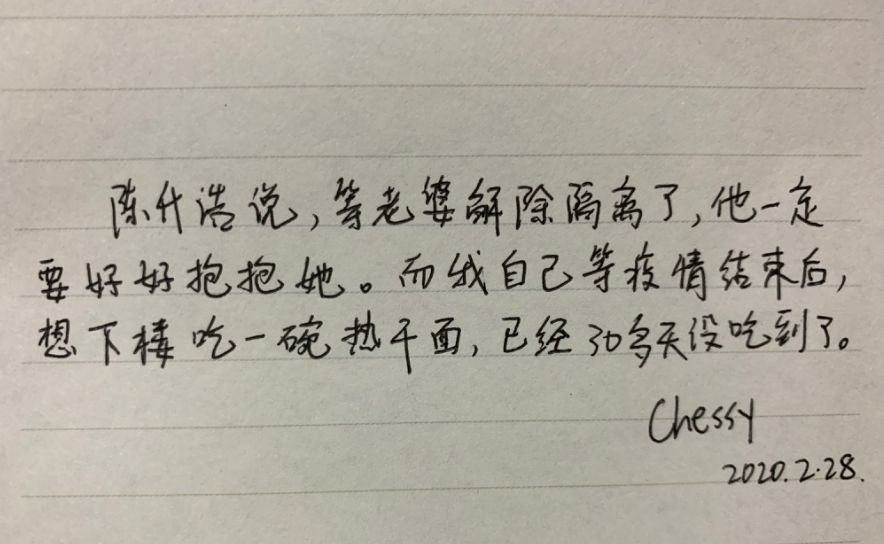 陈什浩说，等老婆解除隔离了，他一定
要好好抱抱她。而我自己等疫情结束后，
想下楼吃一碗热干面，已经30多天没吃到了。
Chessy
2020.2.28.